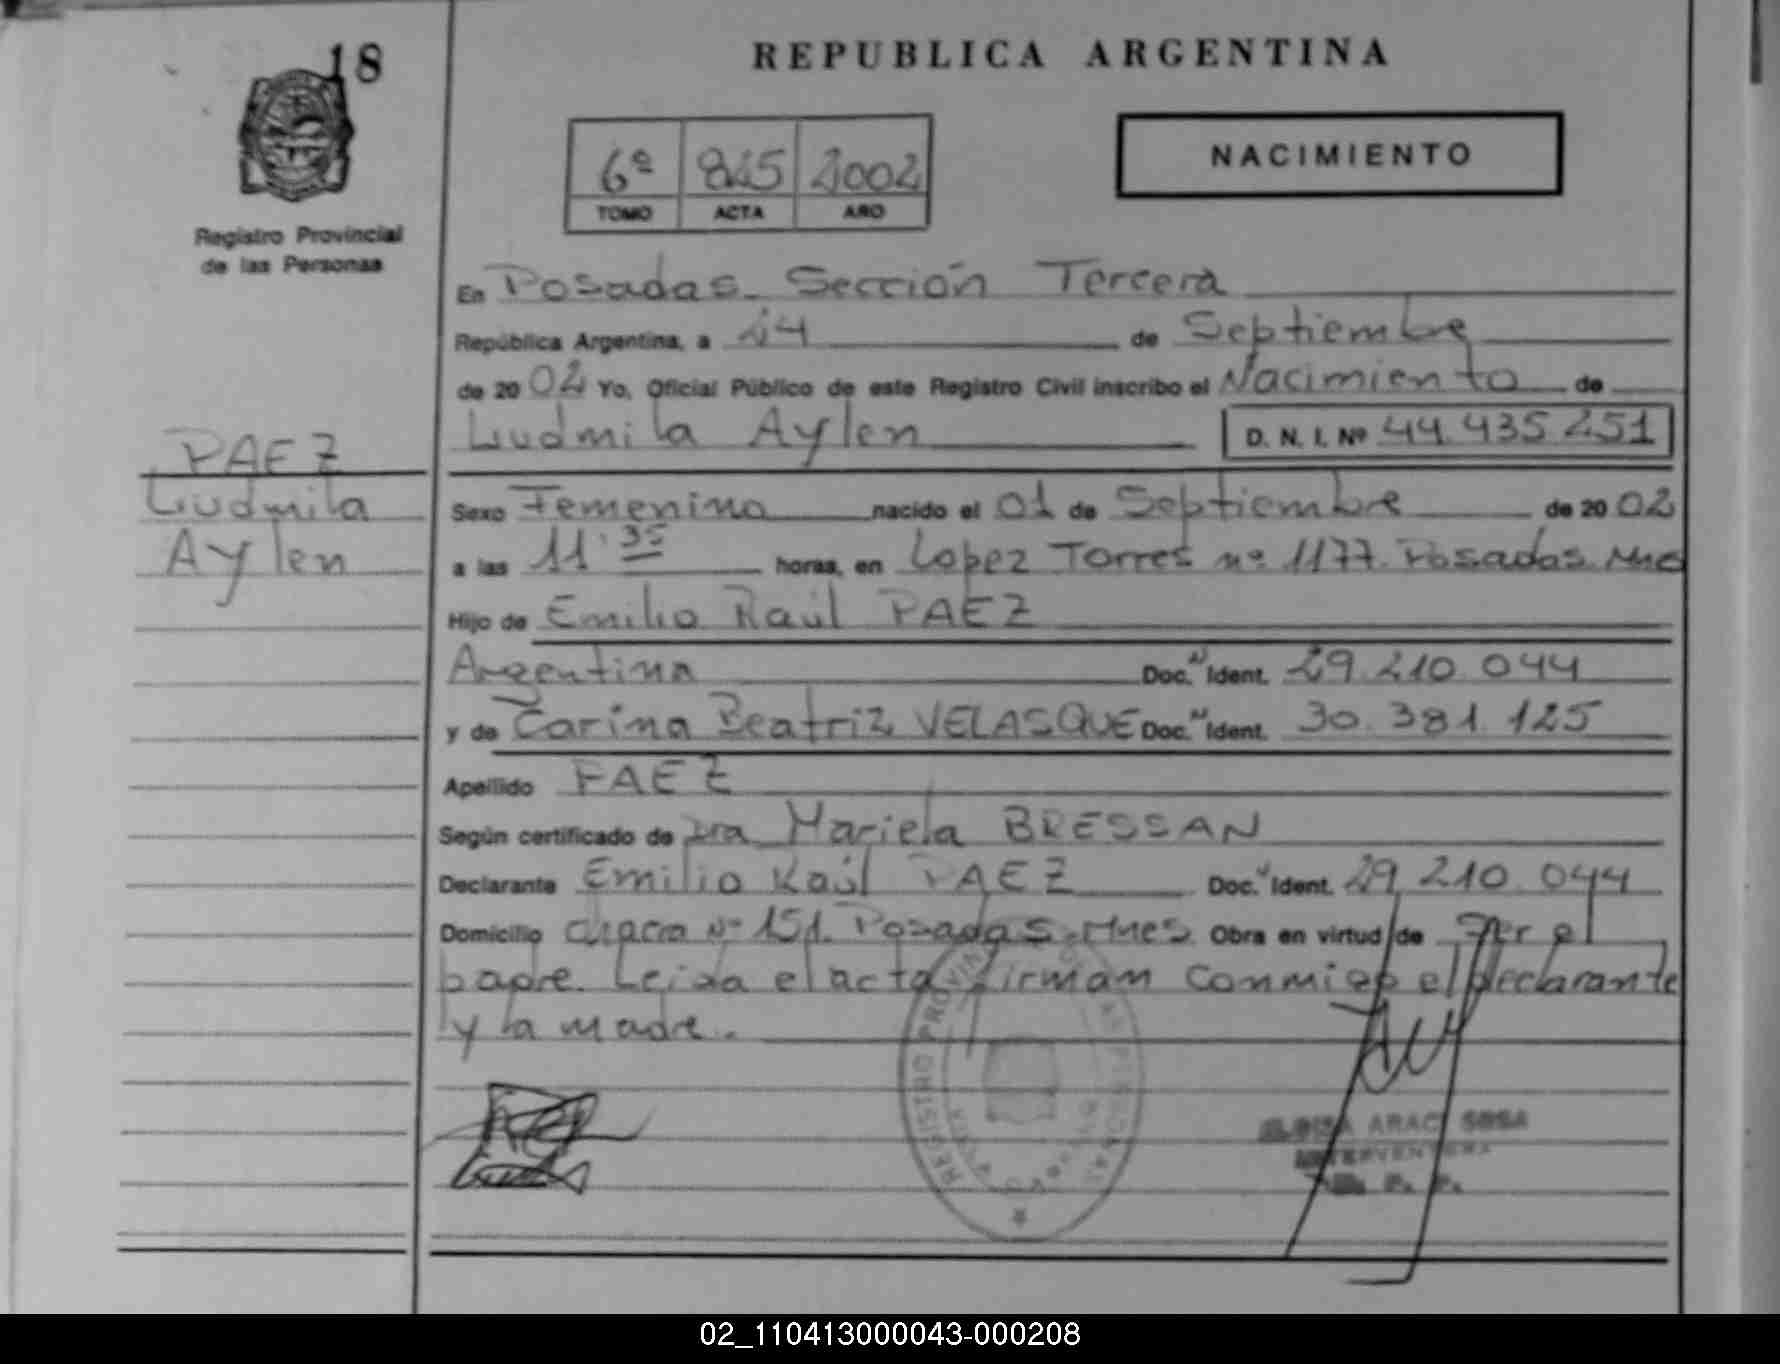 18
REPUBLICA ARGENTINA
6º 845 2002
TOMO ACTA AÑO
NACIMIENTO
Registro Provincial
de las Personas
En Posadas. Sección Tercera
República Argentina, a 24 de Septiembre
de 2002 Yo, Oficial Público de este Registro Civil inscribo el Nacimiento de
Liudmila Aylen D. N. I. Nº 44.435.251
PAEZ
Liudmila
Aylen
Sexo Femenino nacido el 01 de Septiembre de 2002
a las 11'35 horas, en Lopez Torres nº 1177. Posadas. Mnes
Hijo de Emilio Raúl PAEZ
Argentina Doc. Ident. 29.210.044
y de Carina Beatriz VELASQUE Doc. Ident. 30.381.125
Apellido PAEZ
Según certificado de Dra Mariela BRESSAN
Declarante Emilio Raúl PAEZ Doc. Ident. 29.210.044
Domicilio Chacra Nº 151. Posadas. Mnes. Obra en virtud de Ser el
padre. Leida el acta firman conmigo el declarante
y la madre.
REGISTRO PROVINCIAL DE LAS PERSONAS
ARACI SOSA
INTERVENTORA
02_110413000043-000208